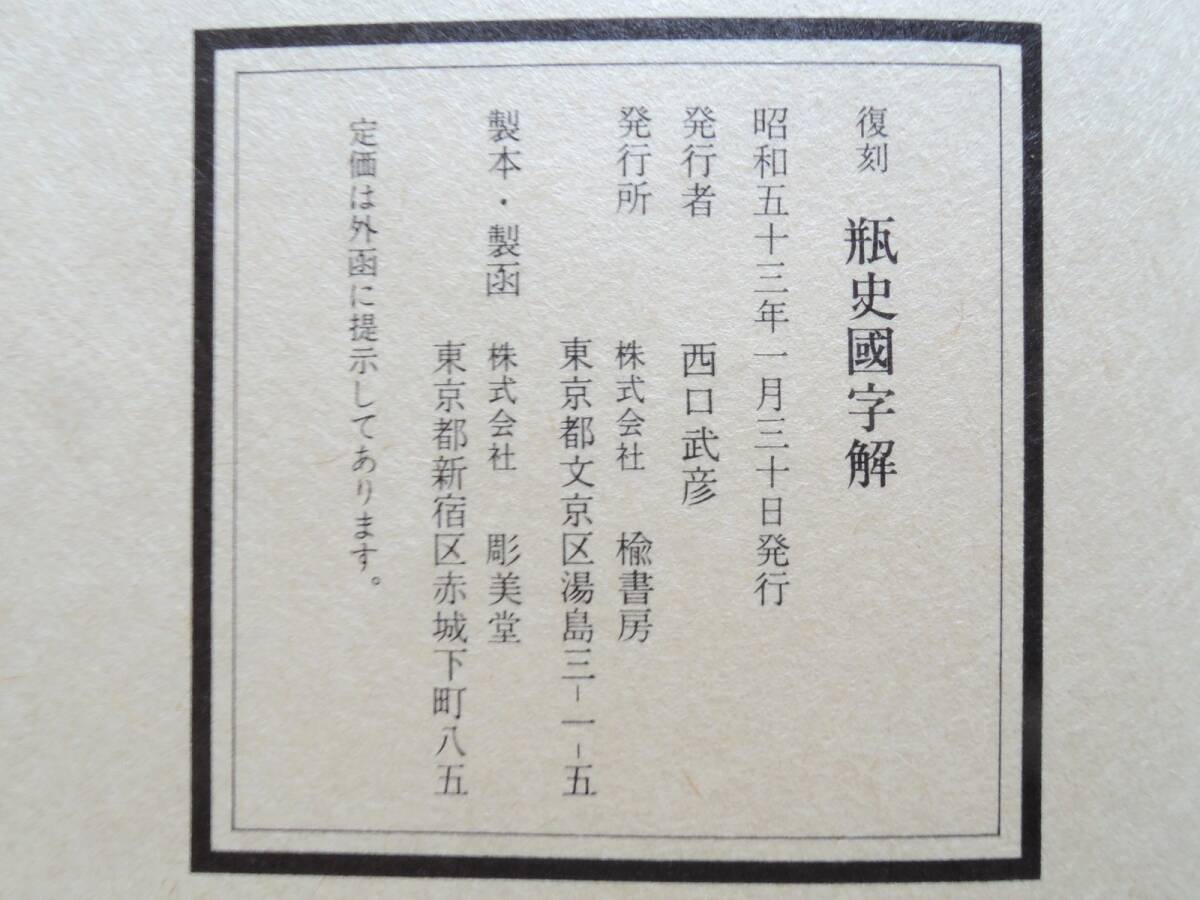 復刻 瓶史國字解
昭和五十三年一月三十日発行
発行者 西口武彦
発行所 株式会社 楡書房
東京都文京区湯島三-一-五
製本・製函 株式会社 彫美堂
東京都新宿区赤城下町八五
定価は外函に提示してあります。